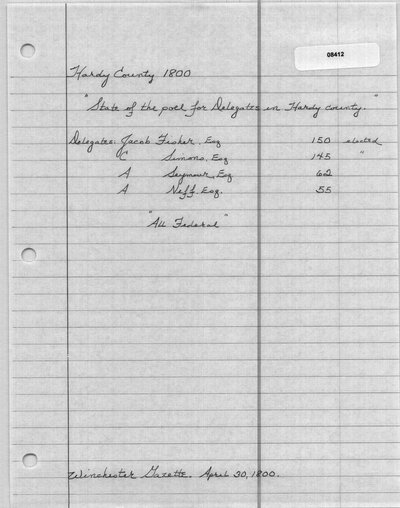 08412
Hardy County 1800
"State of the poll for Delegates in Hardy County."
Delegates: Jacob Fisher, Esq 150 elected
C Simons, Esq 145 "
A Seymour, Esq 62
A Neff, Esq. 55
"All Federal"
Winchester Gazette. April 30, 1800.